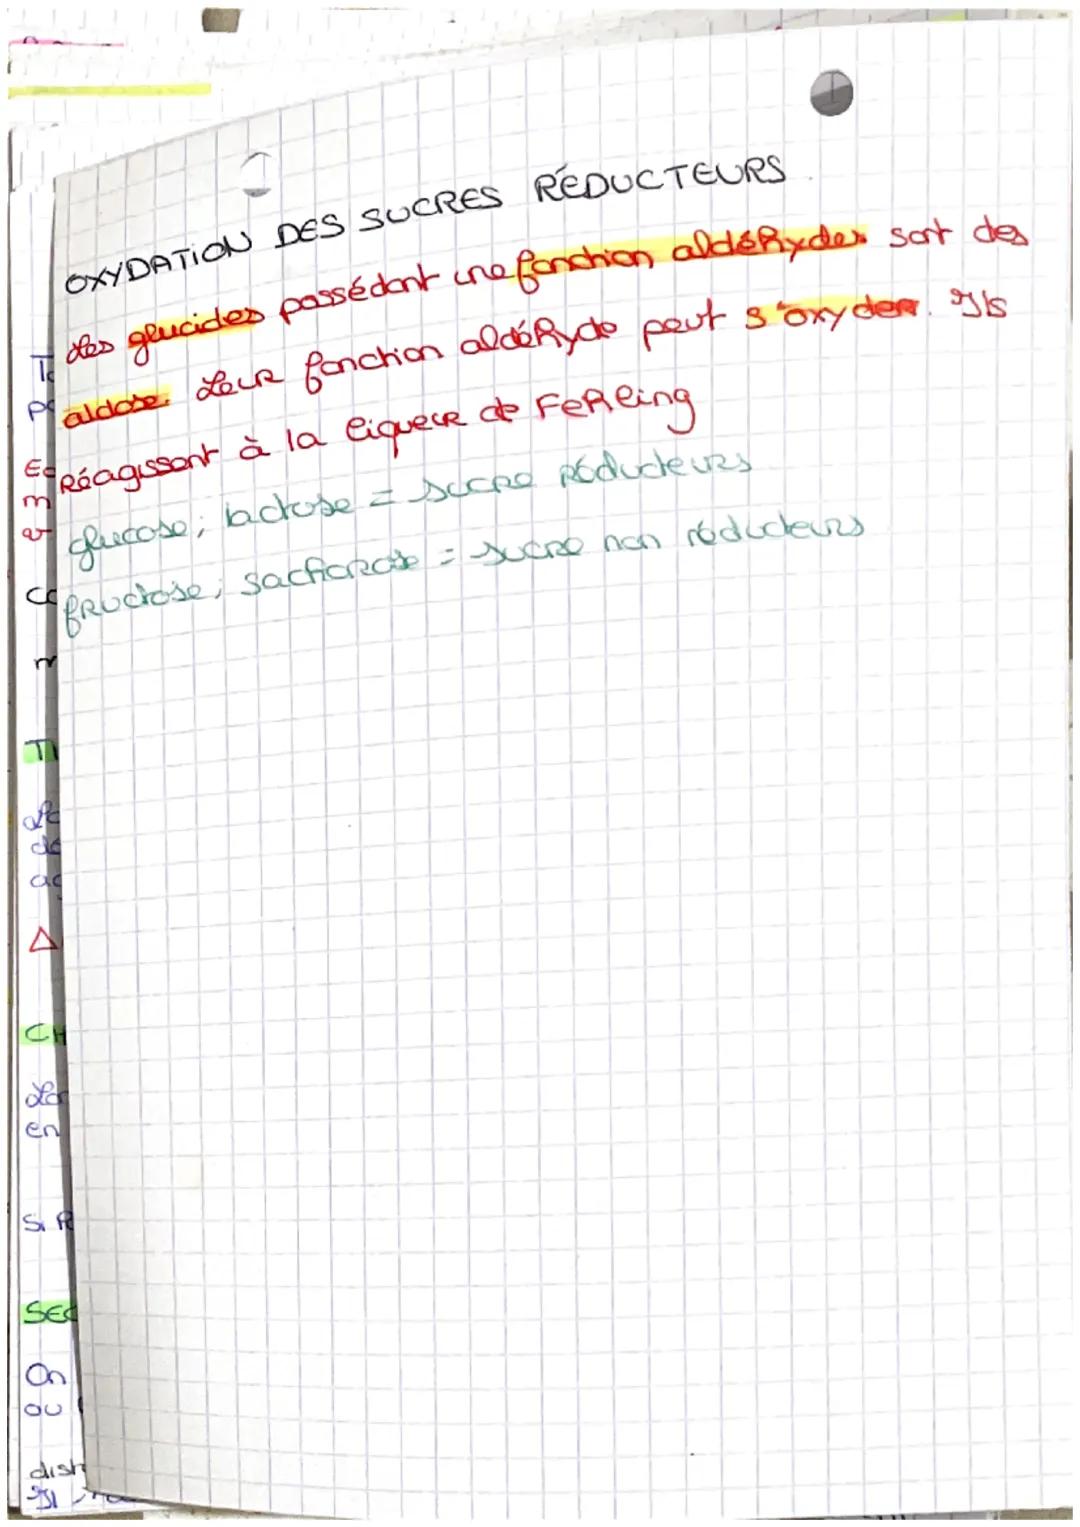 OXYDATION DES SUCRES RÉDUCTEURS
Les glucides possédant une fonction aldéhydes sont des
aldose. Leur fonction aldéhyde peut s'oxyder. Ils
Réagissent à la liqueur de Fehling
glucose, lactose = sucre réducteurs
fructose, saccharose = sucre non réducteurs
CH
en
SEC
On
ou